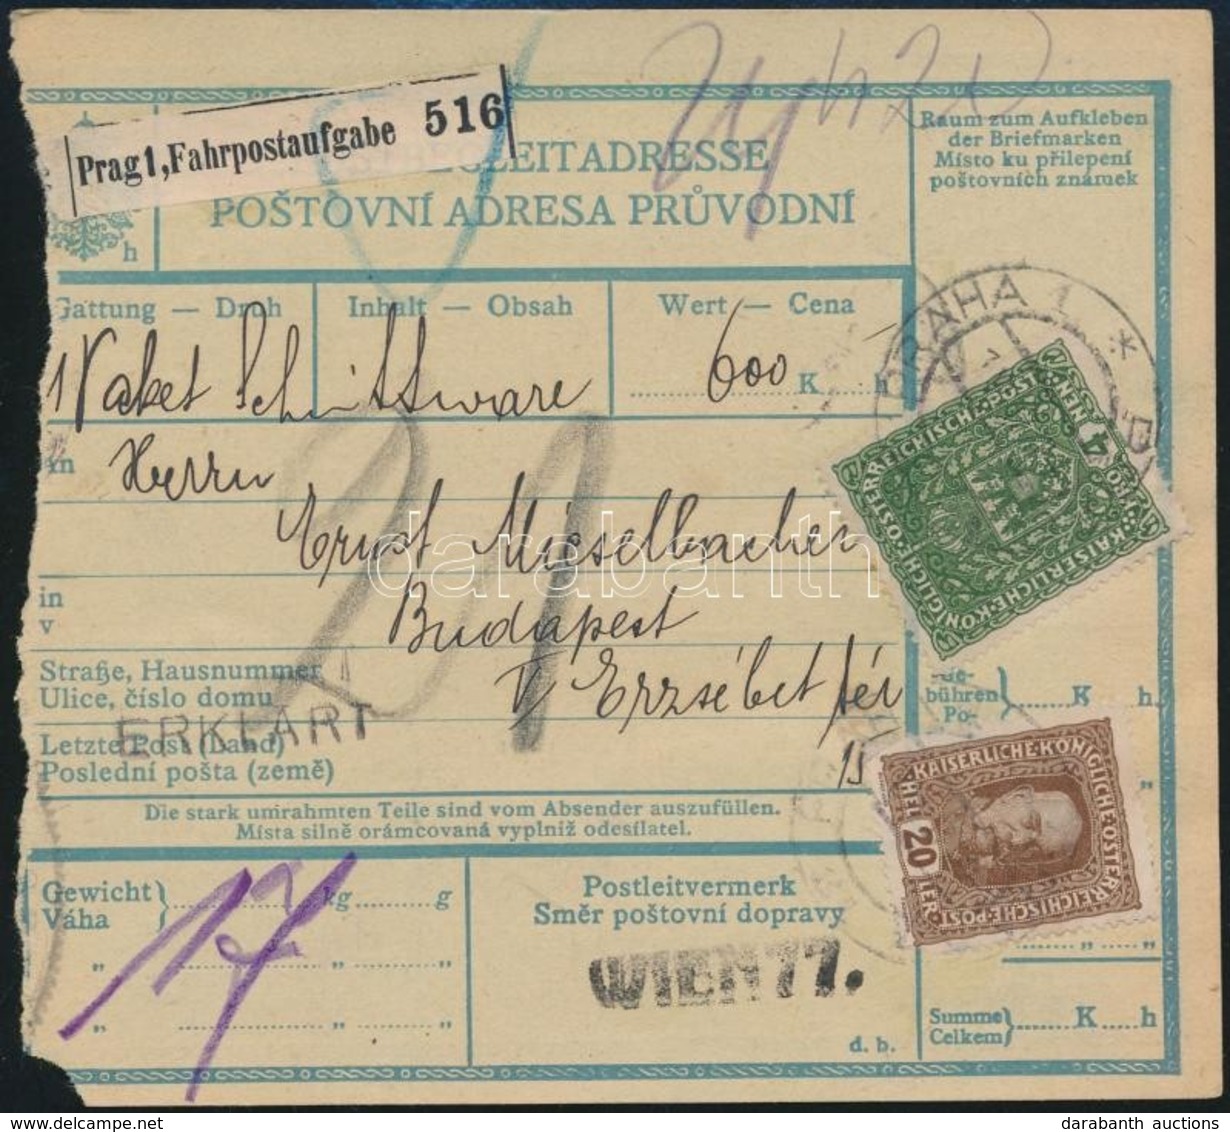 Prag1,Fahrpostaufgabe 516
LEITADRESSE
POŠTOVNÍ ADRESA PRŮVODNÍ
h
Raum zum Aufkleben
der Briefmarken
Místo ku přilepení
poštovních známek
Gattung — Druh
Inhalt — Obsah
Wert — Cena
1 Paket Schnittware
600 K h
PRAHA 1 *
KAISERLICHE·KÖNIGLICH·ÖSTERREICHISCHE·POST
4
KRONEN
An Herrn
21
Ernst Mieselbacher
Budapest
V Erzsébet tér
15
in
v
Straße, Hausnummer
Ulice, číslo domu
ERKLÄRT
Letzte Post (Land)
Poslední pošta (země)
Die stark umrahmten Teile sind vom Absender auszufüllen.
Místa silně orámcovaná vyplniž odesílatel.
Ge-
bühren
Po-
K h
KAISERLICHE·KÖNIGLICHE·ÖSTERREICHISCHE·POST
20 HELLER
Gewicht
Váha
kg g
17
Postleitvermerk
Směr poštovní dopravy
WIEN 77.
d. b.
Summe
Celkem
K h
darabanth
darabanth auctions